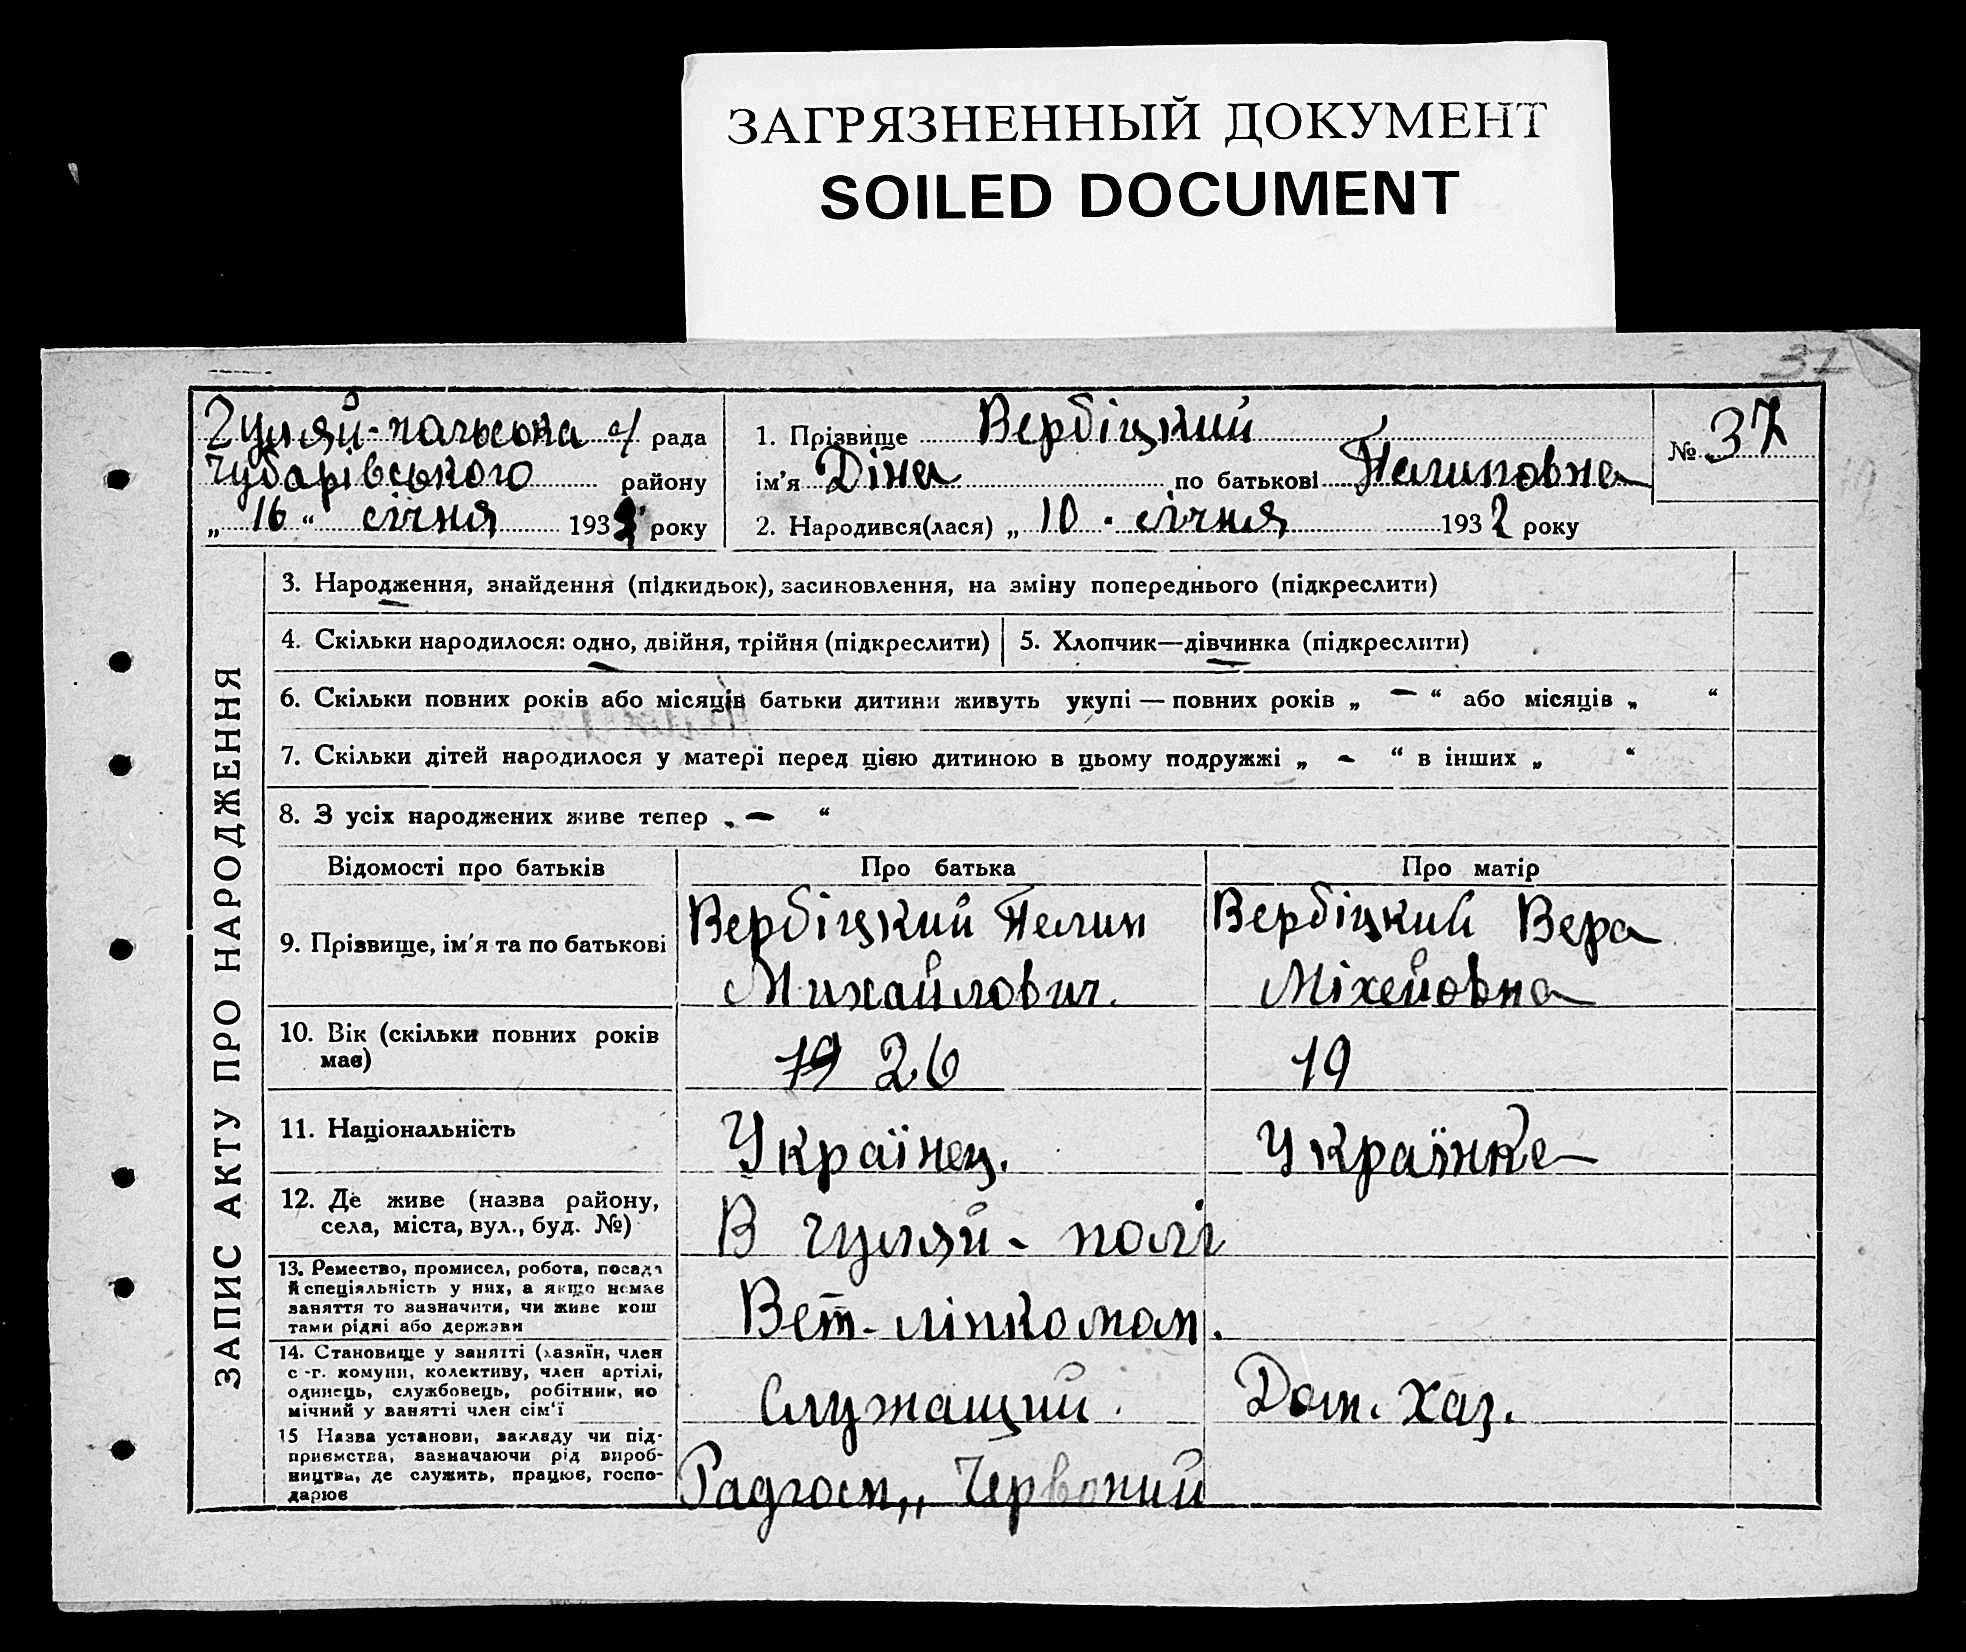 ЗАГРЯЗНЕННЫЙ ДОКУМЕНТ
SOILED DOCUMENT
37
Гуляй-Польська с/ рада
Чубарівського району
„ 16 “ січня 1932 року
1. Прізвище Вербіцкий
ім'я Діна по батькові Пелиповна
№ 37
2. Народився(лася) „ 10 " січня 1932 року
ЗАПИС АКТУ ПРО НАРОДЖЕННЯ
3. Народження, знайдення (підкидьок), засиновлення, на зміну попереднього (підкреслити)
4. Скільки народилося: одно, двійня, трійня (підкреслити)
5. Хлопчик—дівчинка (підкреслити)
6. Скільки повних років або місяців батьки дитини живуть укупі — повних років „ — “ або місяців „ “
7. Скільки дітей народилося у матері перед цією дитиною в цьому подружжі „ - “ в інших „ “
8. З усіх народжених живе тепер „ — “
Відомості про батьків
Про батька
Про матір
9. Прізвище, ім'я та по батькові
Вербіцкий Пелип
Михайлович.
Вербіцкий Вера
Міхейовна
10. Вік (скільки повних років
має)
19 26
19
11. Національність
Українец.
Українка
12. Де живе (назва району,
села, міста, вул., буд. №)
В гуляй-полі
13. Ремество, промисел, робота, посада
й спеціяльність у них, а якщо немає
заняття то зазначити, чи живе кош
тами рідні або держави
Вет-лікпомом.
14. Становище у занятті (хазяїн, член
с-г. комуни, колективу, член артілі,
одинець, службовець, робітник, по
мічний у занятті член сім'ї
Служащий.
Дом. хаз.
15 Назва установи, закладу чи під-
приємства, зазначаючи рід вироб-
ництва, де служить, працює, госпо-
дарює
Радгосп „ Червоний